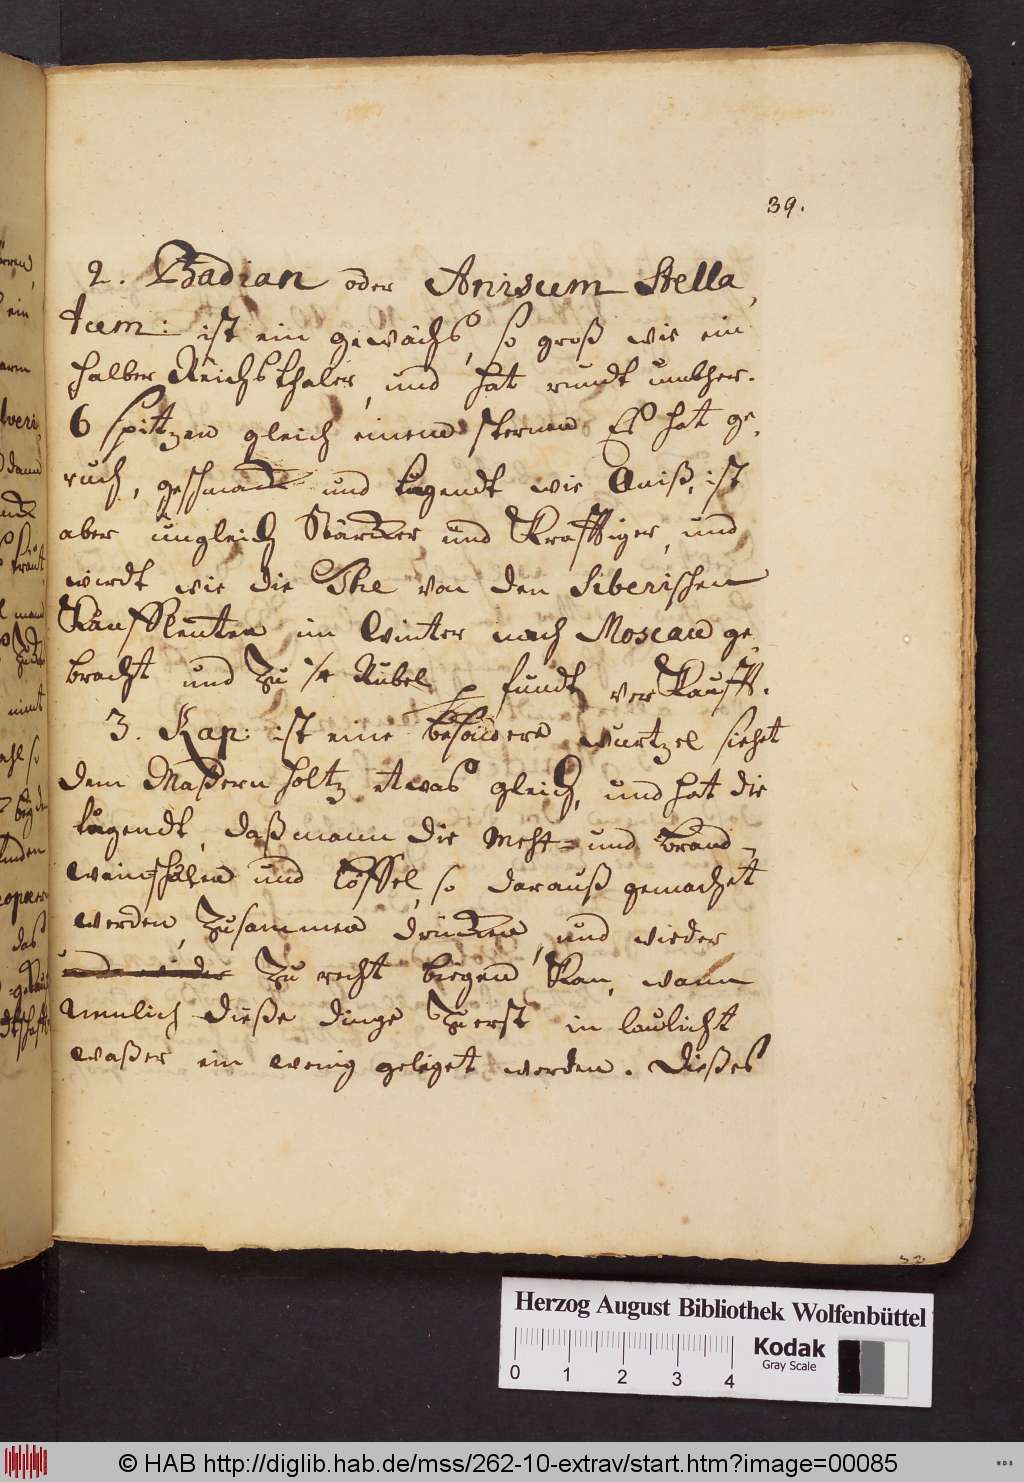 39.
2. Badian oder Anisum Stella
tum: ist ein gewächs, so groß wie ein
halber Reichsthaler, und hat rundt umbher
6 spitzen gleich einem sternen Es hat ge
ruch, geschmack und tugendt wie Aniß, ist
aber ungleich Stärcker und Krafftiger, und
wirdt wie die The von den Siberischen
Kauffleuten im Winter nach Moscau ge
bracht und zu Rubel fundt verkaufft.
3. Kap: ist eine besondere wurtzel siehet
dem Maßern holtz etwas gleich, und hat die
tugendt, daß mann die Meht- und Brand-
weinschalen und Löffel, so darauß gemachet
werden, zusammen drücken, und wieder
und wieder zu recht biegend kan, wann
nemlich dieße dinge zuerst in laulicht
waßer ein wenig geleget worden. Dießes
Herzog August Bibliothek Wolfenbüttel
Kodak
Gray Scale
0 1 2 3 4
© HAB http://diglib.hab.de/mss/262-10-extrav/start.htm?image=00085